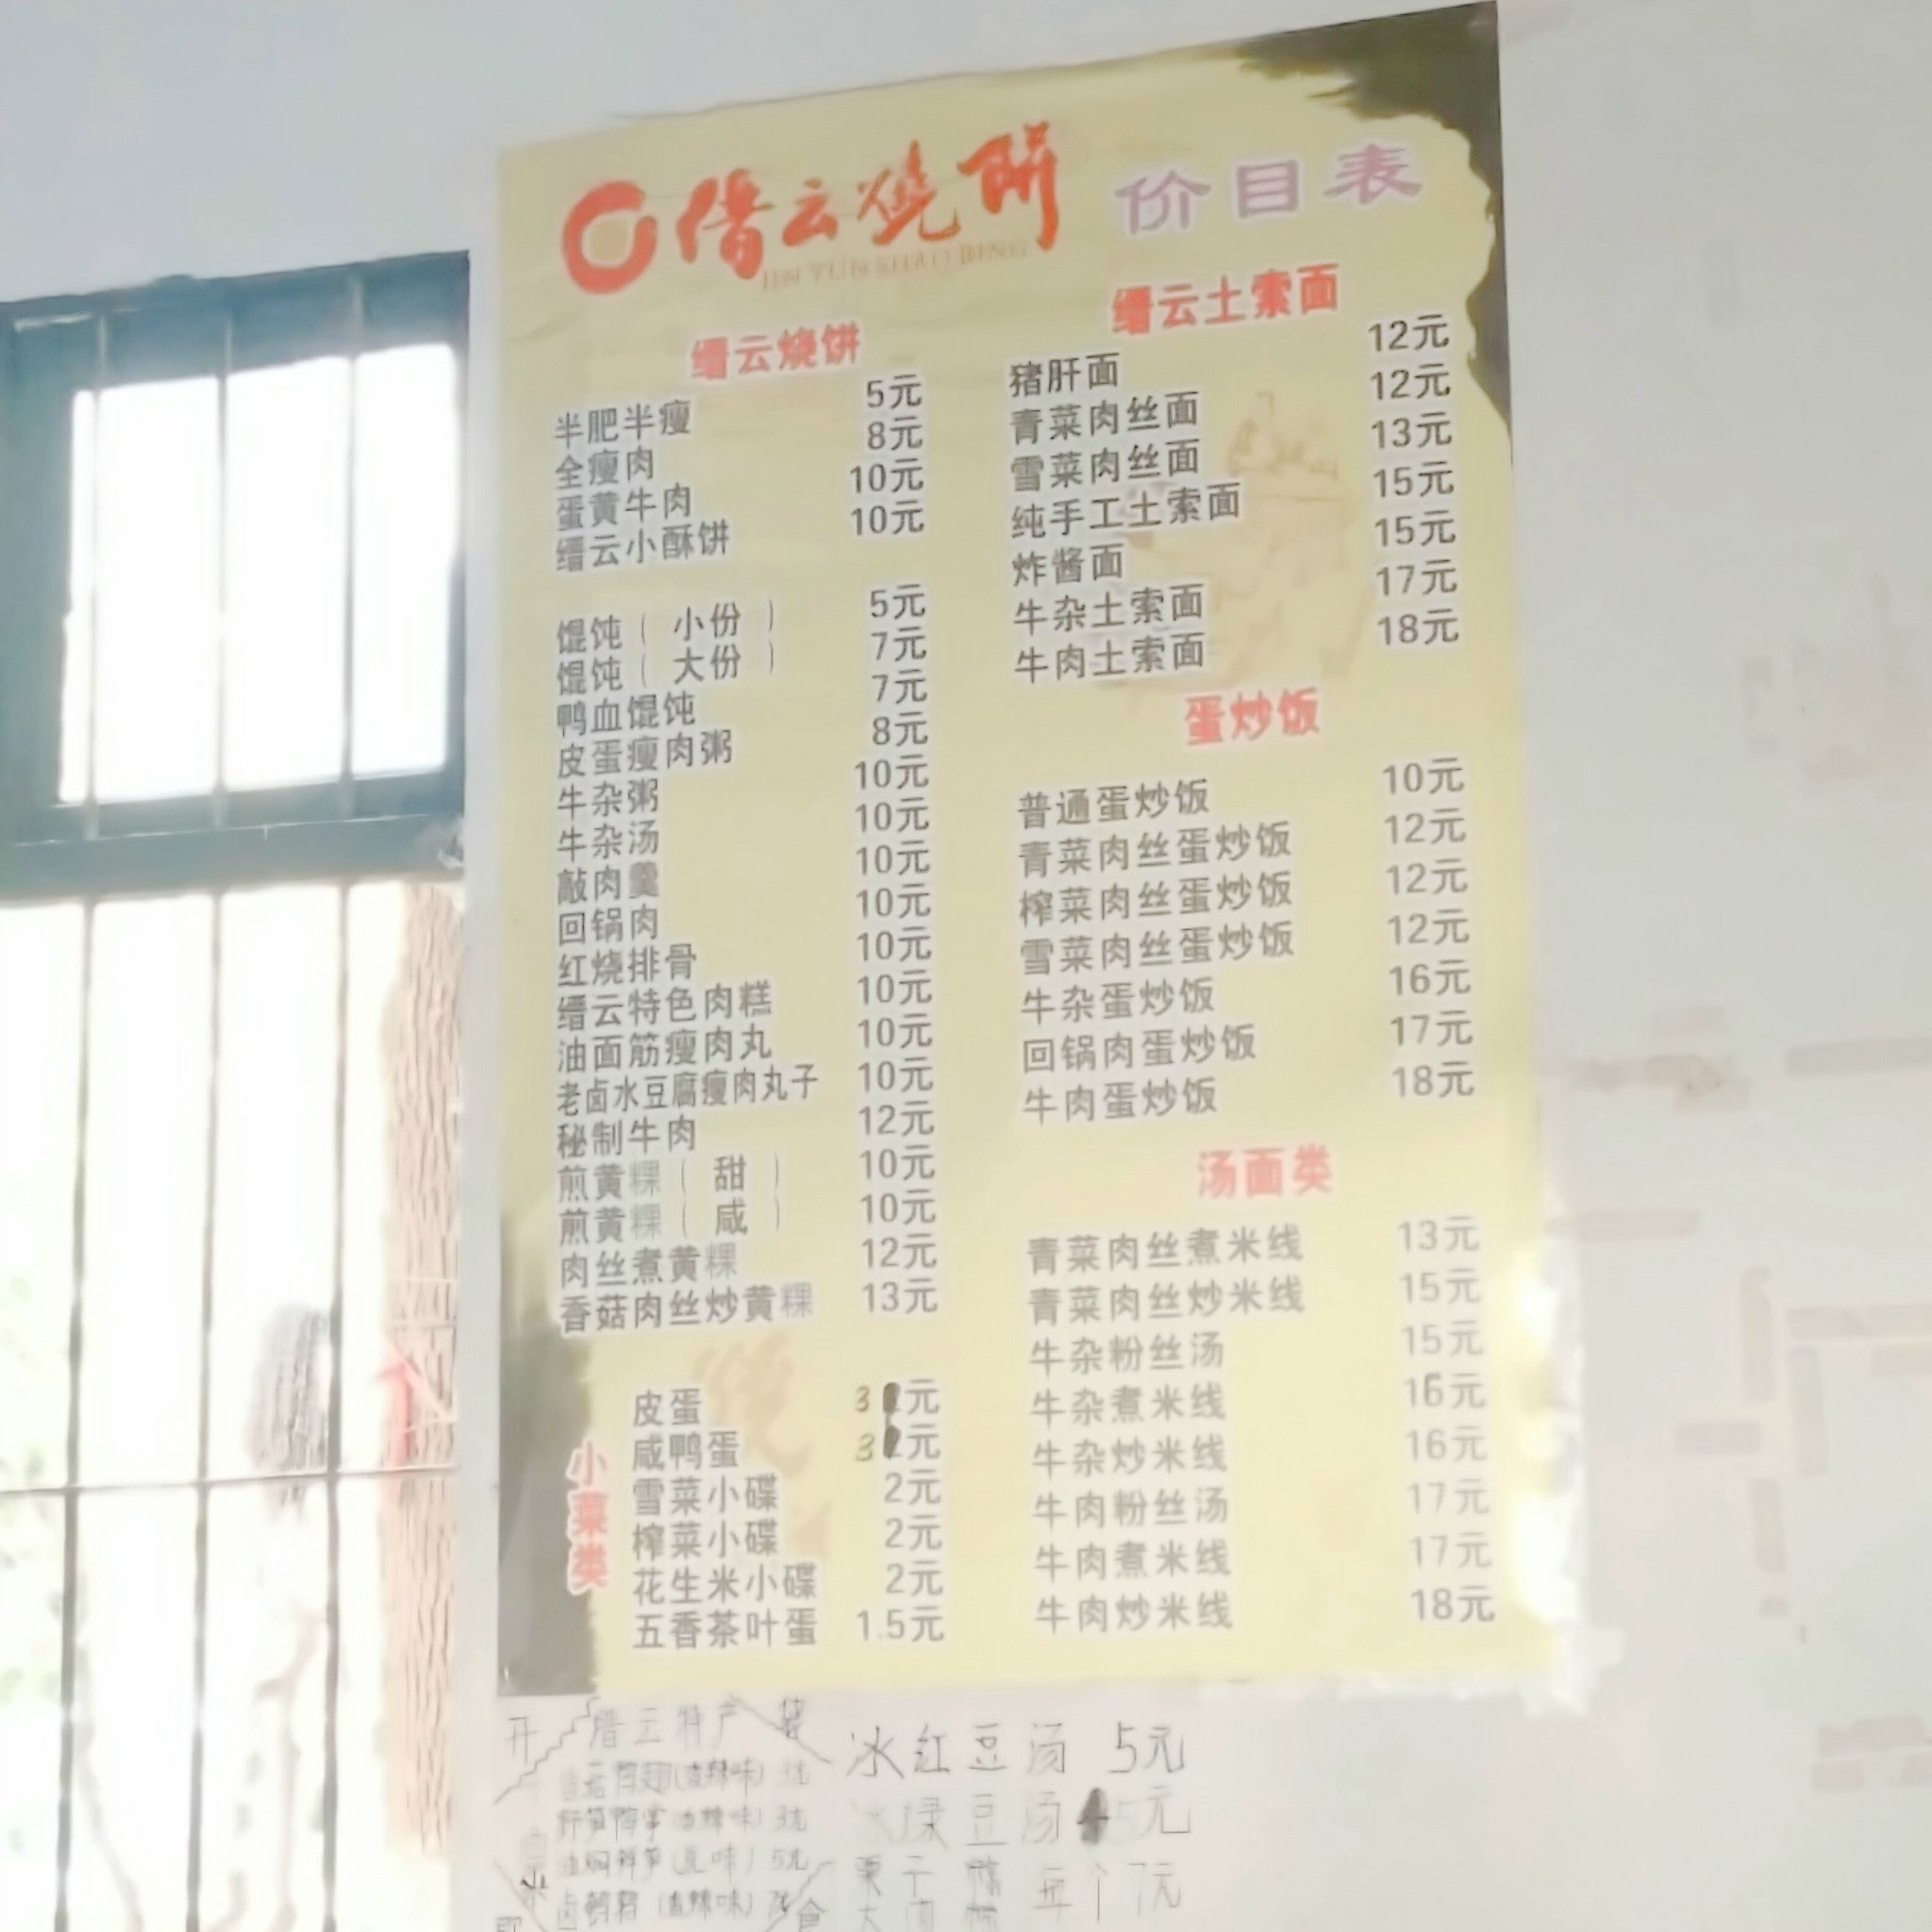 缙云烧饼 价目表
JIN YUN SHAO BING
缙云烧饼
半肥半瘦 5元
全瘦肉 8元
蛋黄牛肉 10元
缙云小酥饼 10元
馄饨（小份） 5元
馄饨（大份） 7元
鸭血馄饨 7元
皮蛋瘦肉粥 8元
牛杂粥 10元
牛杂汤 10元
敲肉羹 10元
回锅肉 10元
红烧排骨 10元
缙云特色肉糕 10元
油面筋瘦肉丸 10元
老卤水豆腐瘦肉丸子 10元
秘制牛肉 12元
煎黄粿（甜） 10元
煎黄粿（咸） 10元
肉丝煮黄粿 12元
香菇肉丝炒黄粿 13元
小菜类
皮蛋 3元
咸鸭蛋 3元
雪菜小碟 2元
榨菜小碟 2元
花生米小碟 2元
五香茶叶蛋 1.5元
缙云土索面
猪肝面 12元
青菜肉丝面 12元
雪菜肉丝面 13元
纯手工土索面 15元
炸酱面 15元
牛杂土索面 17元
牛肉土索面 18元
蛋炒饭
普通蛋炒饭 10元
青菜肉丝蛋炒饭 12元
榨菜肉丝蛋炒饭 12元
雪菜肉丝蛋炒饭 12元
牛杂蛋炒饭 16元
回锅肉蛋炒饭 17元
牛肉蛋炒饭 18元
汤面类
青菜肉丝煮米线 13元
青菜肉丝炒米线 15元
牛杂粉丝汤 15元
牛杂煮米线 16元
牛杂炒米线 16元
牛肉粉丝汤 17元
牛肉煮米线 17元
牛肉炒米线 18元
开 缙云特产 袋
鸭翅(香辣味) 3元
野笋鸭掌(香辣味) 3元
油焖鲜笋(原味) 5元
(香辣味)
即 食
冰红豆汤 5元
冰绿豆汤 5元
7元